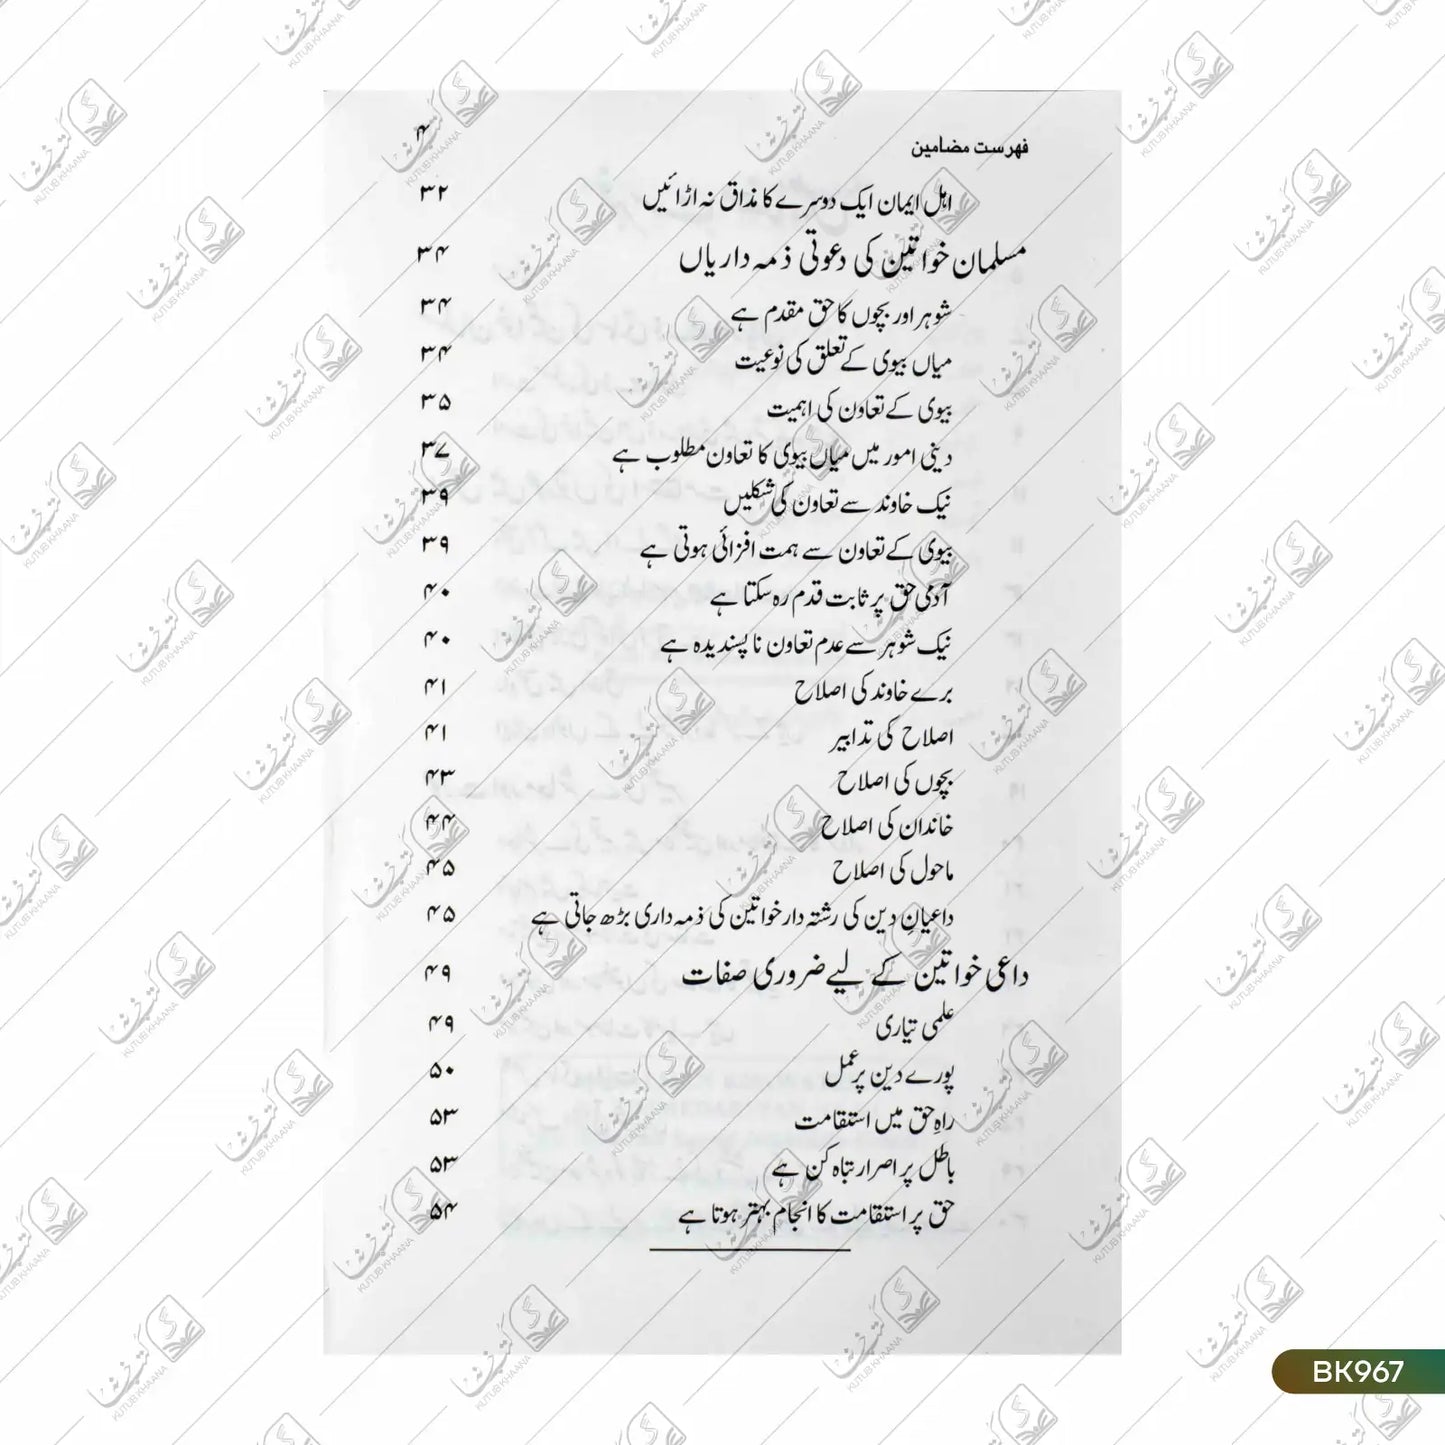 فہرست مضامین ۴
اہل ایمان ایک دوسرے کا مذاق نہ اڑائیں ۳۲
مسلمان خواتین کی دعوتی ذمہ داریاں ۳۴
شوہر اور بچوں کا حق مقدم ہے ۳۴
میاں بیوی کے تعلق کی نوعیت ۳۴
بیوی کے تعاون کی اہمیت ۳۵
دینی امور میں میاں بیوی کا تعاون مطلوب ہے ۳۷
نیک خاوند سے تعاون کی شکلیں ۳۹
بیوی کے تعاون سے ہمت افزائی ہوتی ہے ۳۹
آدمی حق پر ثابت قدم رہ سکتا ہے ۴۰
نیک شوہر سے عدم تعاون ناپسندیدہ ہے ۴۰
برے خاوند کی اصلاح ۴۱
اصلاح کی تدابیر ۴۱
بچوں کی اصلاح ۴۳
خاندان کی اصلاح ۴۴
ماحول کی اصلاح ۴۵
داعیانِ دین کی رشتہ دار خواتین کی ذمہ داری بڑھ جاتی ہے ۴۵
داعی خواتین کے لیے ضروری صفات ۴۹
علمی تیاری ۴۹
پورے دین پر عمل ۵۰
راہِ حق میں استقامت ۵۳
باطل پر اصرار تباہ کن ہے ۵۳
حق پر استقامت کا انجام بہتر ہوتا ہے ۵۴
BK967
KUTUB KHAANA